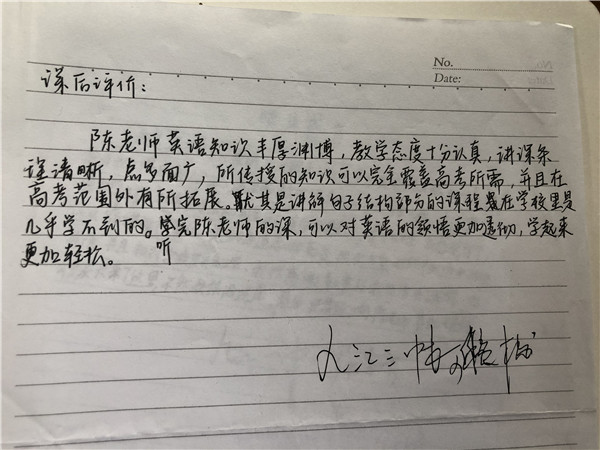 No.
Date:
课后评价：
陈老师英语知识丰厚渊博，教学态度十分认真，讲课条
理清晰，点多面广，所传授的知识可以完全覆盖高考所需，并且在
高考范围外有所拓展。尤其是讲解句子结构部分的课程是在学校里是
几乎学不到的。听完陈老师的课，可以对英语的领悟更加透彻，学起来
更加轻松。
九江三中